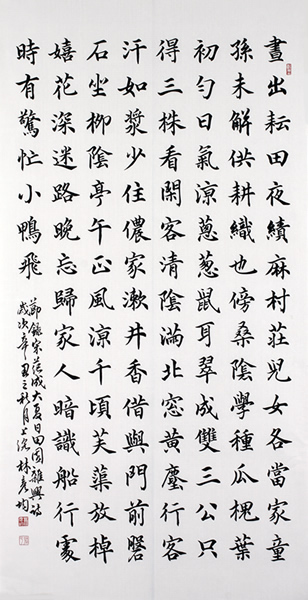 晝出耘田夜績麻村莊兒女各當家童
孫未解供耕織也傍桑陰學種瓜槐葉
初勻日氣涼蔥蔥鼠耳翠成雙三公只
得三株看閑客清陰滿北窓黃塵行客
汗如漿少住儂家漱井香借與門前磐
石坐柳陰亭午正風涼千頃芙蕖放棹
嬉花深迷路晚忘歸家人暗識船行處
時有驚忙小鴨飛
錄宋范成大夏日田園雜興詩
歲次辛丑之秋月上浣林彥均